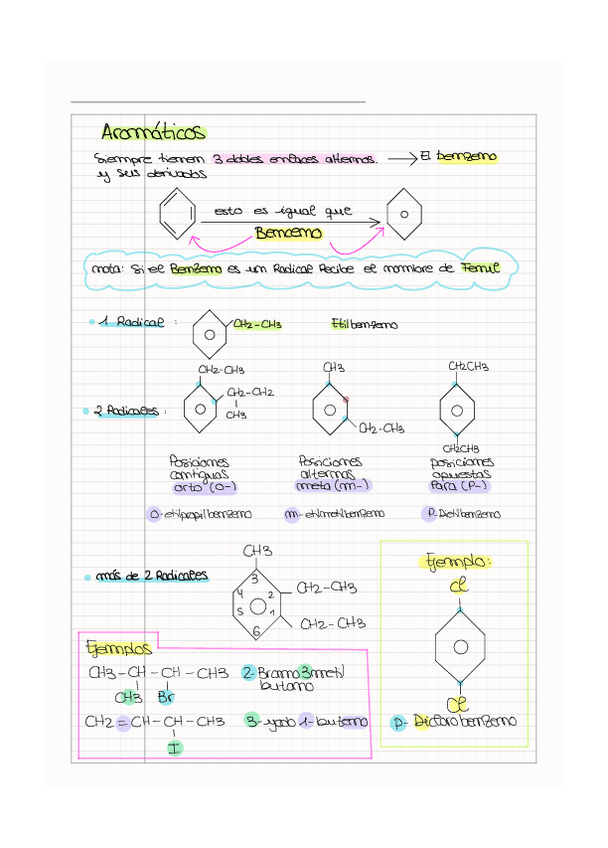 Aromáticos
Siempre tienen 3 dobles enlaces alternos. → El benzeno
y sus derivados
esto es igual que
Benceno
nota: Si el Benzeno es un Radical Recibe el nombre de Fenil
1 Radical :
CH2-CH3
Etilbenzeno
CH2-CH3
CH3
CH2CH3
2 Radicales :
CH2-CH2
CH3
CH2-CH3
CH2CH3
Posiciones
contiguas
orto (o-)
Posiciones
alternas
meta (m-)
posiciones
opuestas
Para (P-)
O-etilpropilbenzeno
m-etilmetilbenzeno
P-Dietilbenzeno
más de 2 Radicales
CH3
3
4
2
5
1
6
CH2-CH3
CH2-CH3
Ejemplo:
Cl
Cl
P-Dicloro benzeno
Ejemplos
CH3 - CH - CH - CH3
CH3
Br
2-Bromo 3metil
butano
CH2 = CH - CH - CH3
I
3-yodo 1-buteno